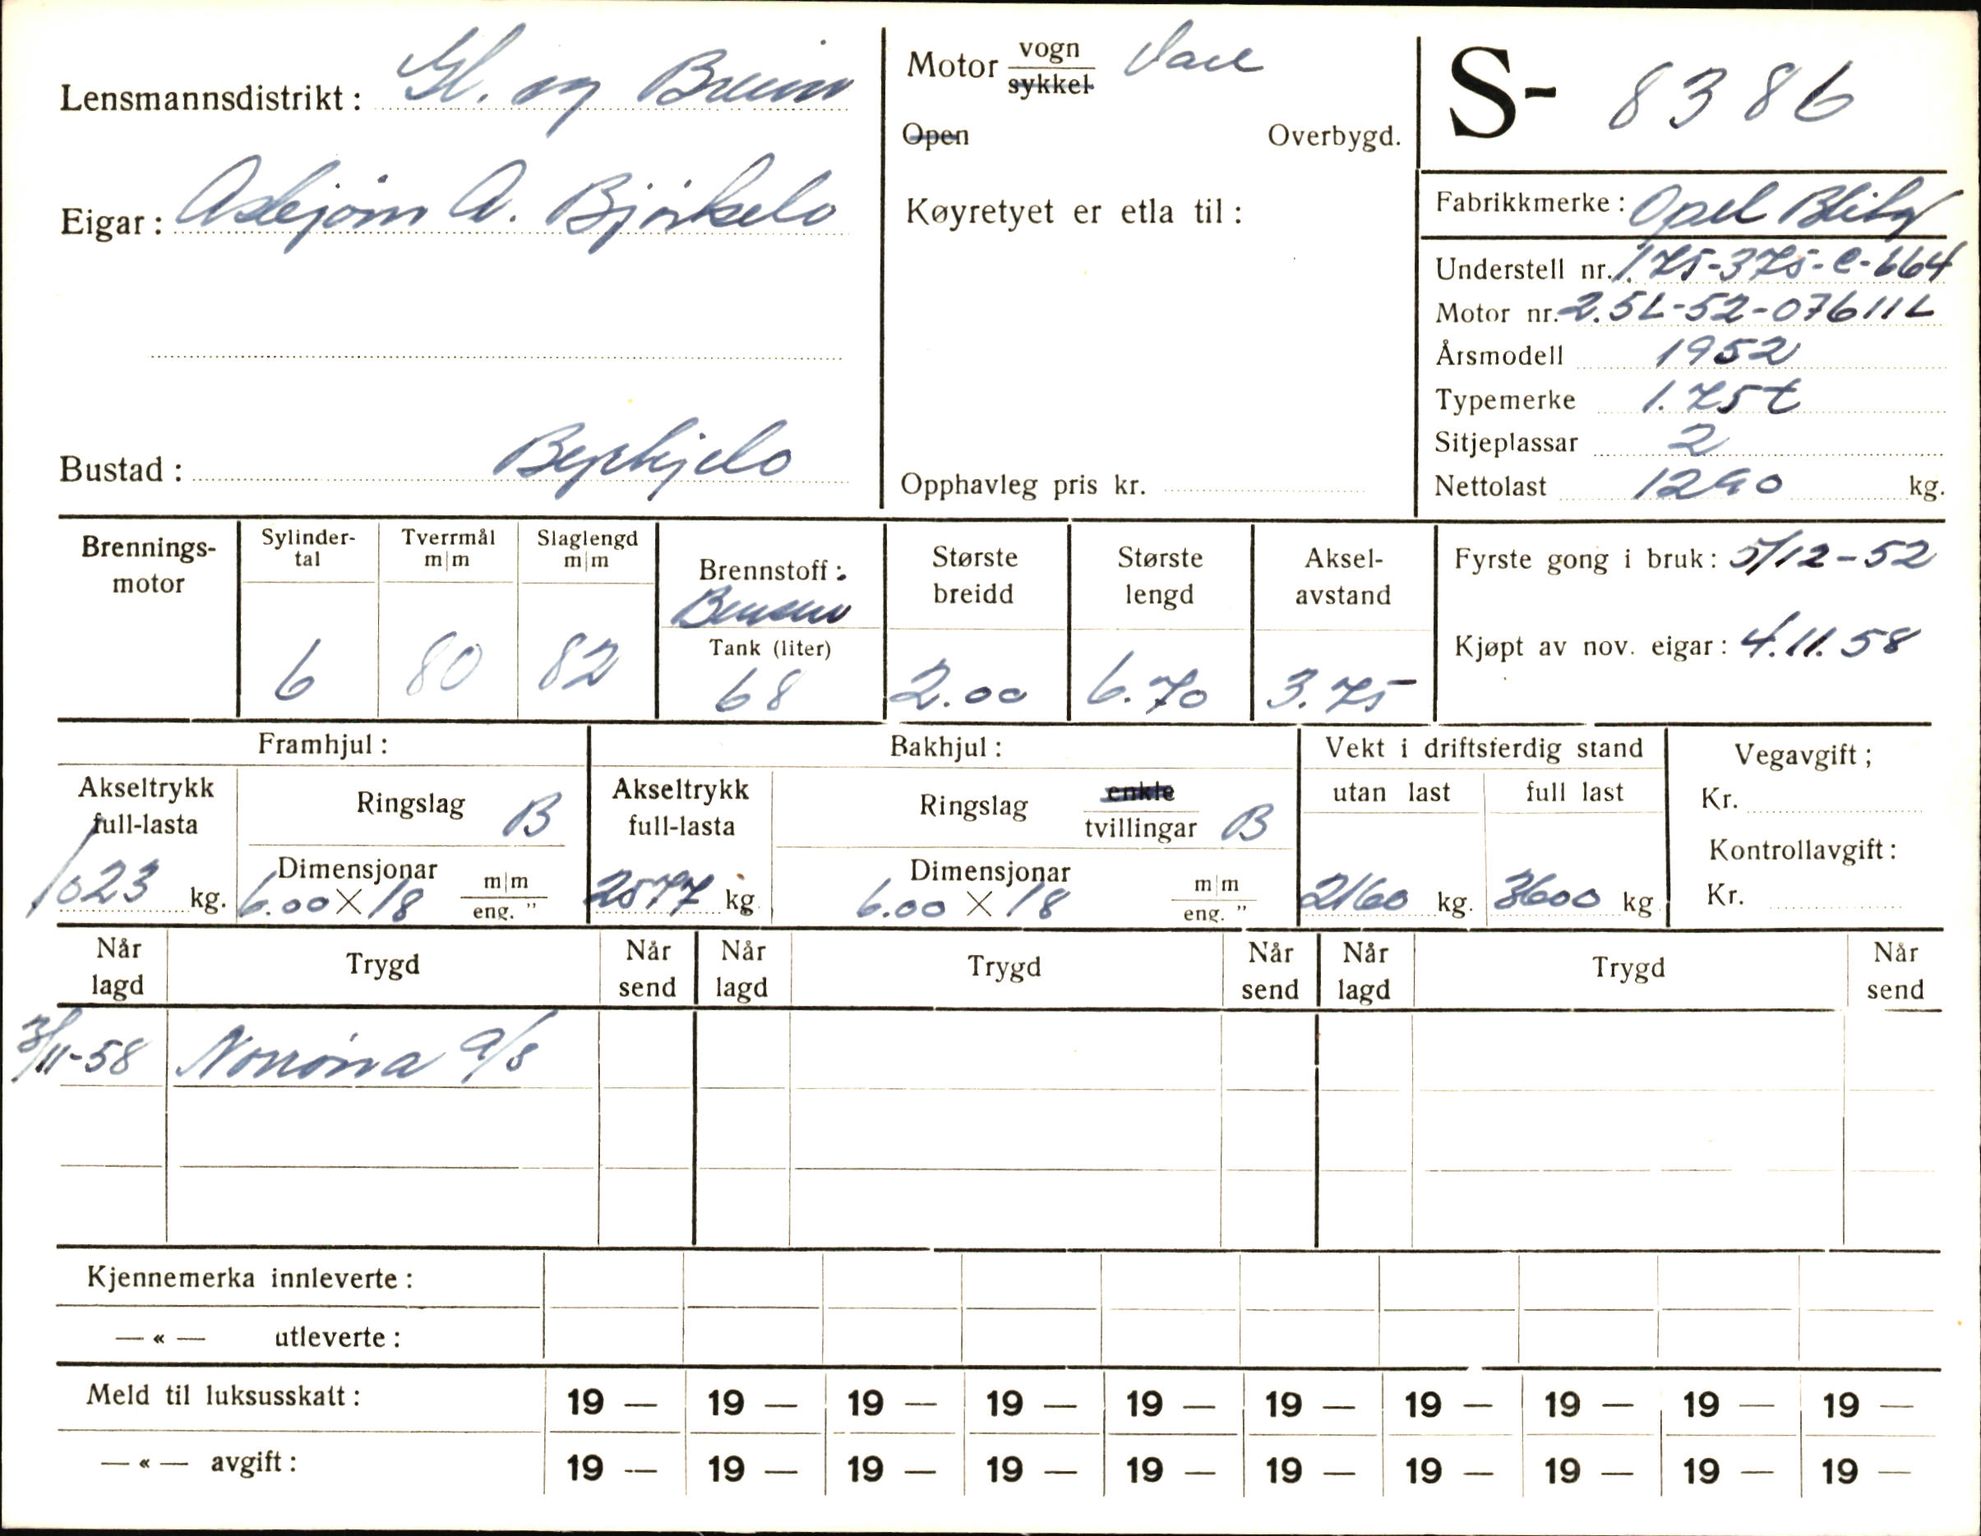 Lensmannsdistrikt: Gl. og Breim
Eigar: Asbjørn A. Bjørkelo
Bustad: Byrkjelo
Motor vogn Vare
sykkel
Open Overbygd.
Køyretyet er etla til:
Opphavleg pris kr.
S- 8386
Fabrikkmerke: Opel Blitz
Understell nr. 1.75-375-C-664
Motor nr. 2.5L-52-07611L
Årsmodell 1952
Typemerke 1.75 t
Sitjeplassar 2
Nettolast 1290 kg.
Brennings-
motor
Sylinder-
tal
6
Tverrmål
m/m
80
Slaglengd
m/m
82
Brennstoff:
Bensin
Tank (liter)
68
Største
breidd
2.00
Største
lengd
6.70
Aksel-
avstand
3.75
Fyrste gong i bruk: 5/12-52
Kjøpt av nov. eigar: 4.11.58
Framhjul:
Akseltrykk
full-lasta
1023 kg.
Ringslag B
Dimensjonar
6.00 X 18 m/m
eng. "
Bakhjul:
Akseltrykk
full-lasta
2577 kg
Ringslag enkle
tvillingar B
Dimensjonar
6.00 X 18 m/m
eng. "
Vekt i driftsferdig stand
utan last full last
2160 kg. 3600 kg
Vegavgift;
Kr.
Kontrollavgift:
Kr.
Når
lagd Trygd Når
send Når
lagd Trygd Når
send Når
lagd Trygd Når
send
3/11-58 Norrøna a/s
Kjennemerka innleverte:
— « — utleverte:
Meld til luksusskatt: 19 — 19 — 19 — 19 — 19 — 19 — 19 — 19 — 19 — 19 —
— « — avgift: 19 — 19 — 19 — 19 — 19 — 19 — 19 — 19 — 19 — 19 —